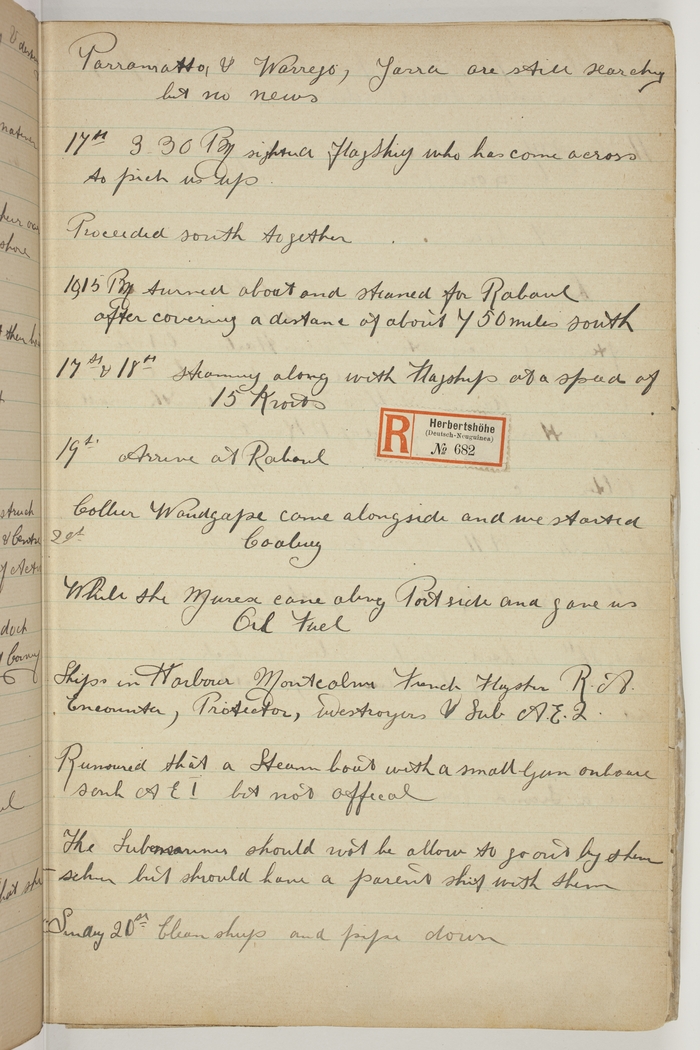 Parramatta, & Warrego, Yarra are still searching
but no news
17th 3.30 PM sighted Flagship who has come across
to pick us up.
Proceeded south together.
1915 PM turned about and steamed for Rabaul
after covering a distance of about 750 miles south
17th & 18th steaming along with Flagship at a speed of
15 Knots
R Herbertshöhe
(Deutsch-Neuguinea)
№ 682
19th Arrive at Rabaul
Collier Wandgape came alongside and we started
20th Coaling
While the Murex came along Port side and gave us
Oil Fuel
Ships in Harbour Montcalm French Flagship R.A.
Encounter, Protector, Destroyers & Sub A.E.2.
Rumoured that a Steam boat with a small Gun onboard
sank A E 1 but not offical
The Submarines should not be allow to go out by them
selves but should have a parent ship with them
Sunday 20th Clean ship and pipe down